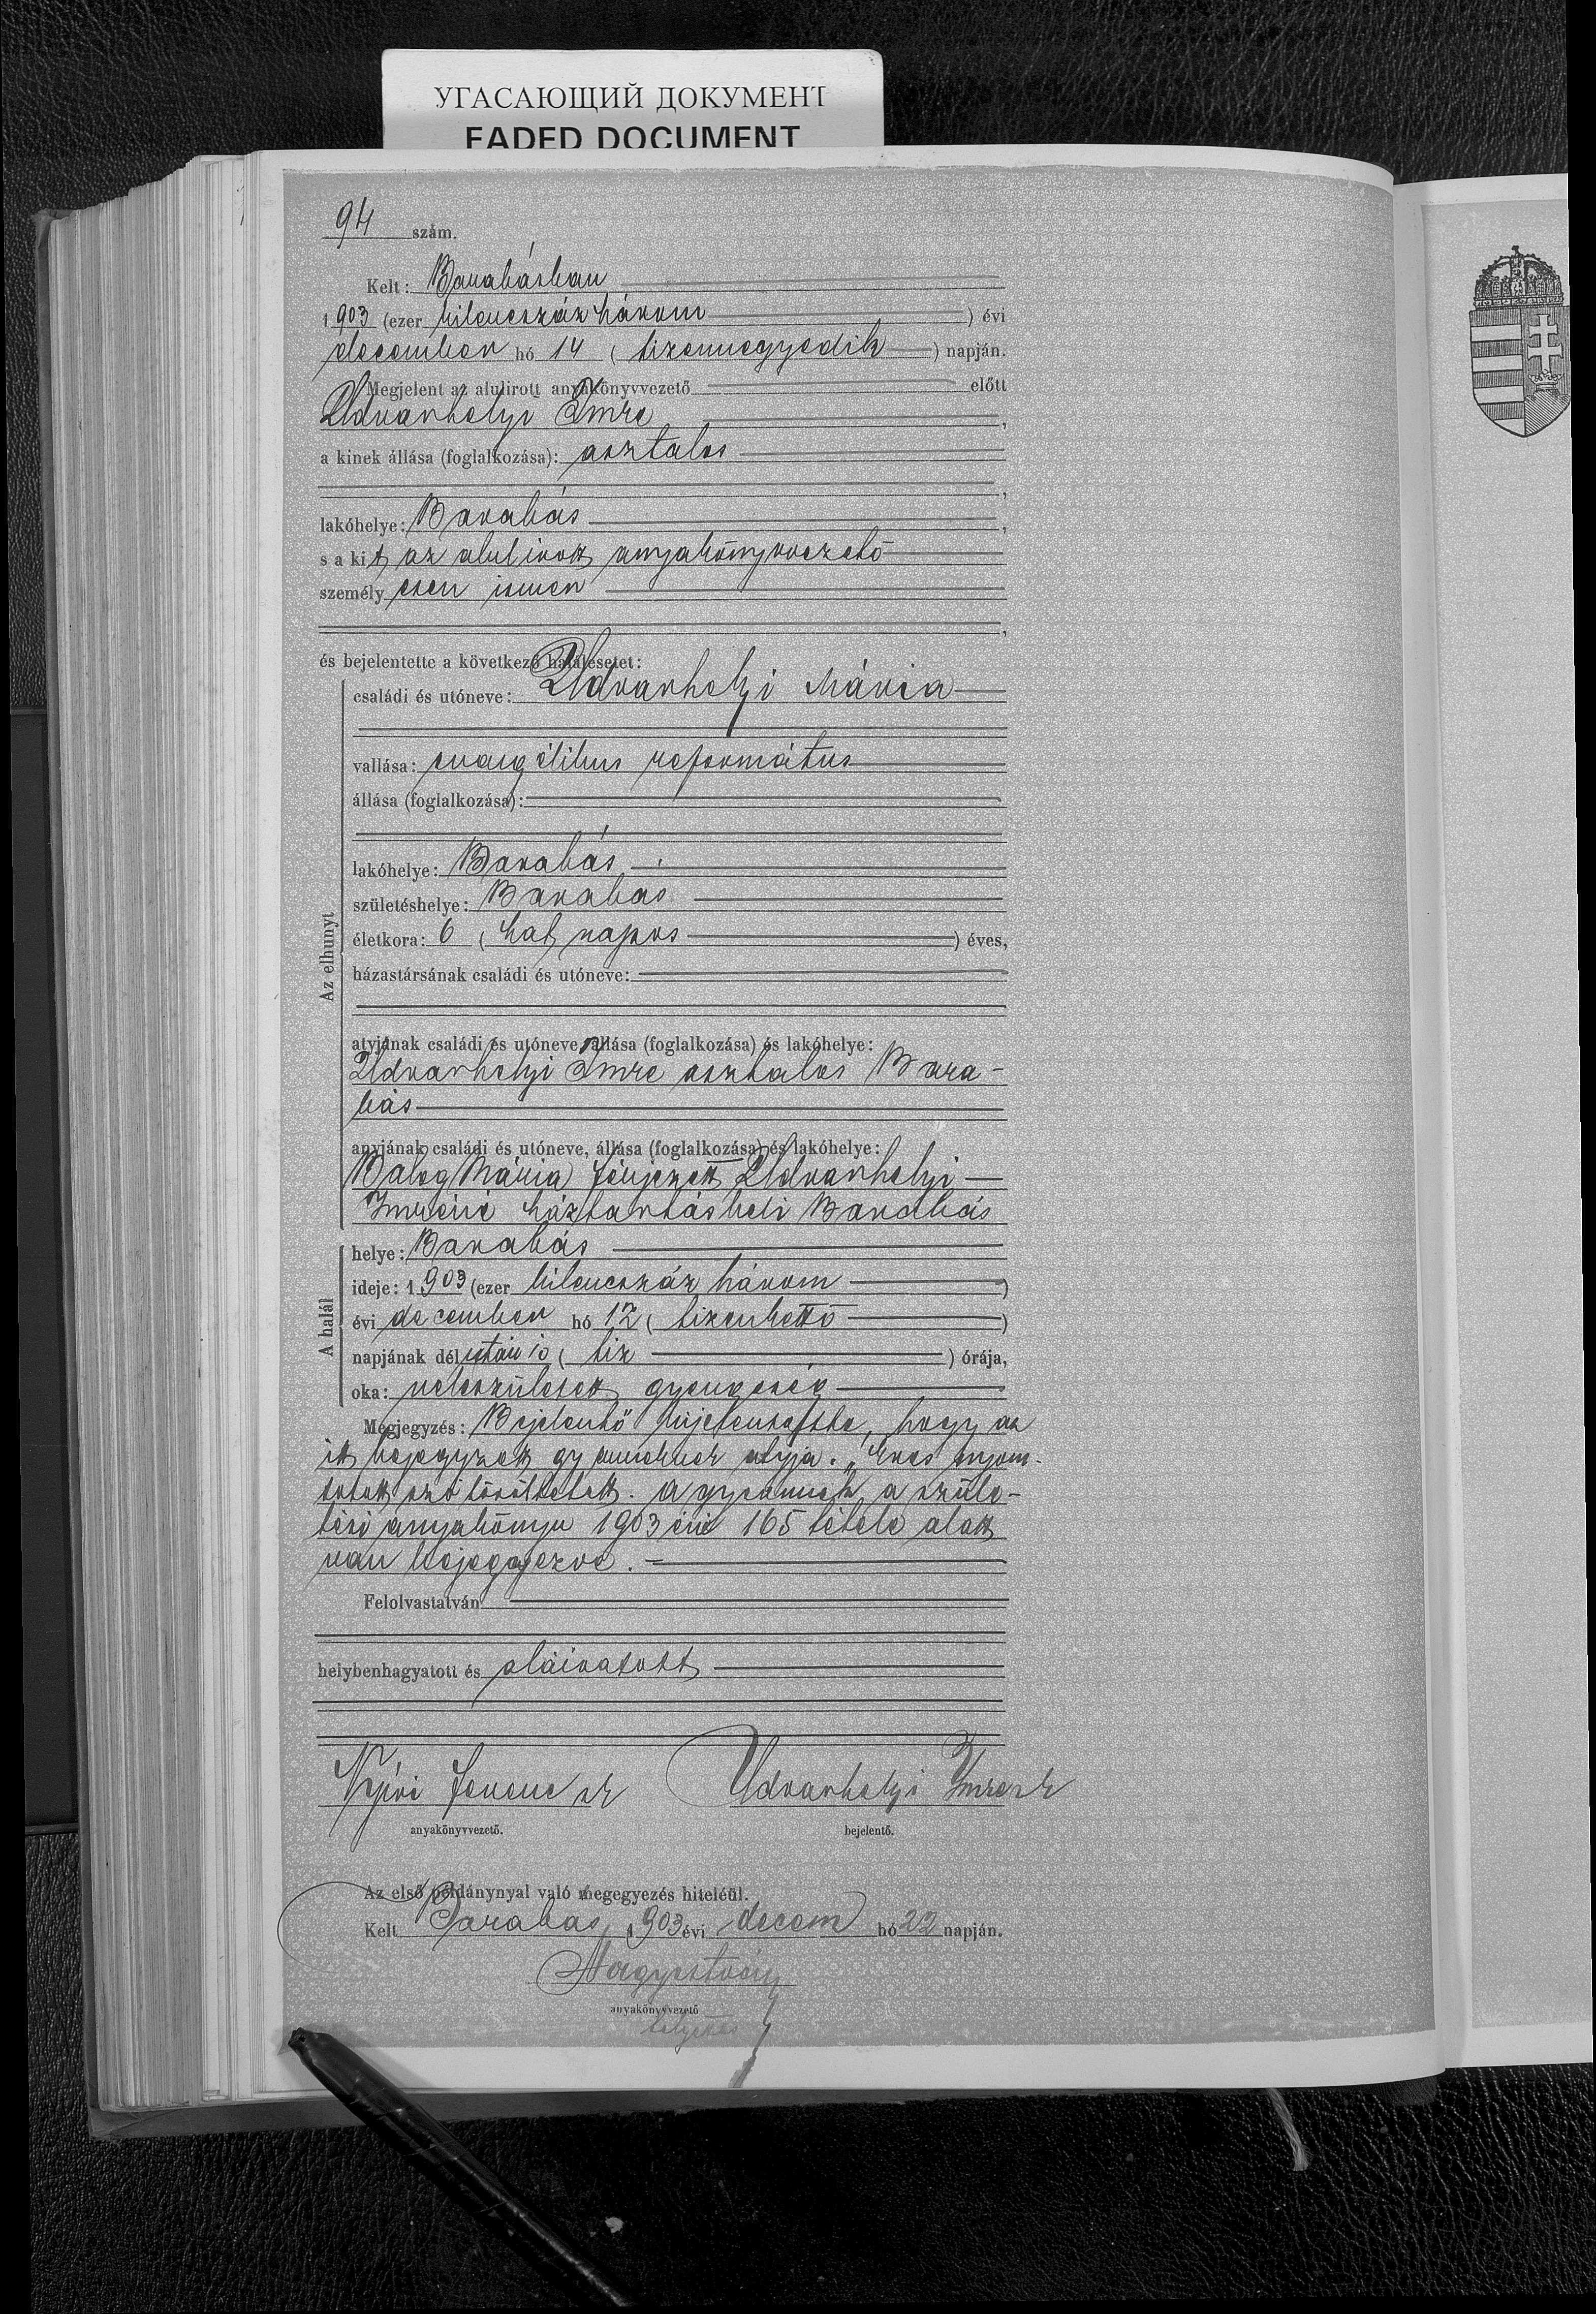 УГАСАЮЩИЙ ДОКУМЕНТ
FADED DOCUMENT
94 szám.
Kelt: Barabásban
1903 (ezer kilencszáz három) évi
december hó 14 (tizennegyedik) napján.
Megjelent az alulirott anyakönyvvezető előtt
Udvarhelyi Imre,
a kinek állása (foglalkozása): asztalos
,
lakóhelye: Barabás,
s a kit az alulirott anyakönyvvezető
személyesen ismer
,
és bejelentette a következő halálesetet:
Az elhunyt
családi és utóneve: Udvarhelyi Mária
vallása: evangélikus református
állása (foglalkozása):
lakóhelye: Barabás
születéshelye: Barabas
életkora: 6 (hat napos) éves,
házastársának családi és utóneve:
atyjának családi és utóneve, állása (foglalkozása) és lakóhelye:
Udvarhelyi Imre asztalos Bara-
bás
anyjának családi és utóneve, állása (foglalkozása) és lakóhelye:
Balog Mária férjezett Udvarhelyi
Imréné háztartásbeli Barabás
A halál
helye: Barabás
ideje: 1903 (ezer kilencszáz három)
évi december hó 12 (tizenkettő)
napjának délután 10 (tiz) órája,
oka: veleszületett gyengeség
Megjegyzés: Bejelentő kijelentette, hogy az
itt bejegyzett gyermeknek atyja. „Éves" nyom-
tatott szó töröltetett. A gyermek a szüle-
tési anyakönyv 1903 évi 165 tétele alatt
van bejegyezve. =
Felolvastatván
helybenhagyatott és aláiratott
Nyíri Ferenc sk Udvarhelyi Imre sk
anyakönyvvezető. bejelentő.
Az első példánynyal való megegyezés hiteléül.
Kelt Barabas, 1903 évi decem hó 22 napján.
anyakönyvvezető
helyettes